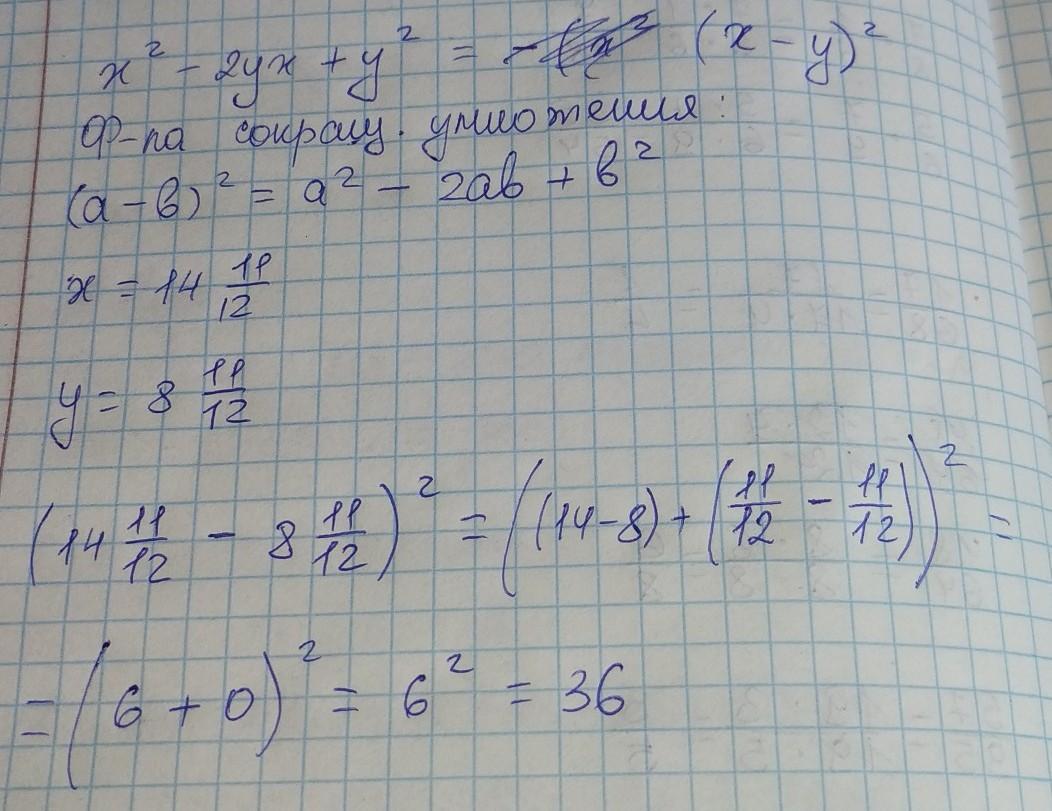 x² - 2yx + y² = (x - y)²
Ф-ла сокращ. умножения:
(a - b)² = a² - 2ab + b²
x = 14 11/12
y = 8 11/12
(14 11/12 - 8 11/12)² = ((14-8) + (11/12 - 11/12))² =
= (6 + 0)² = 6² = 36